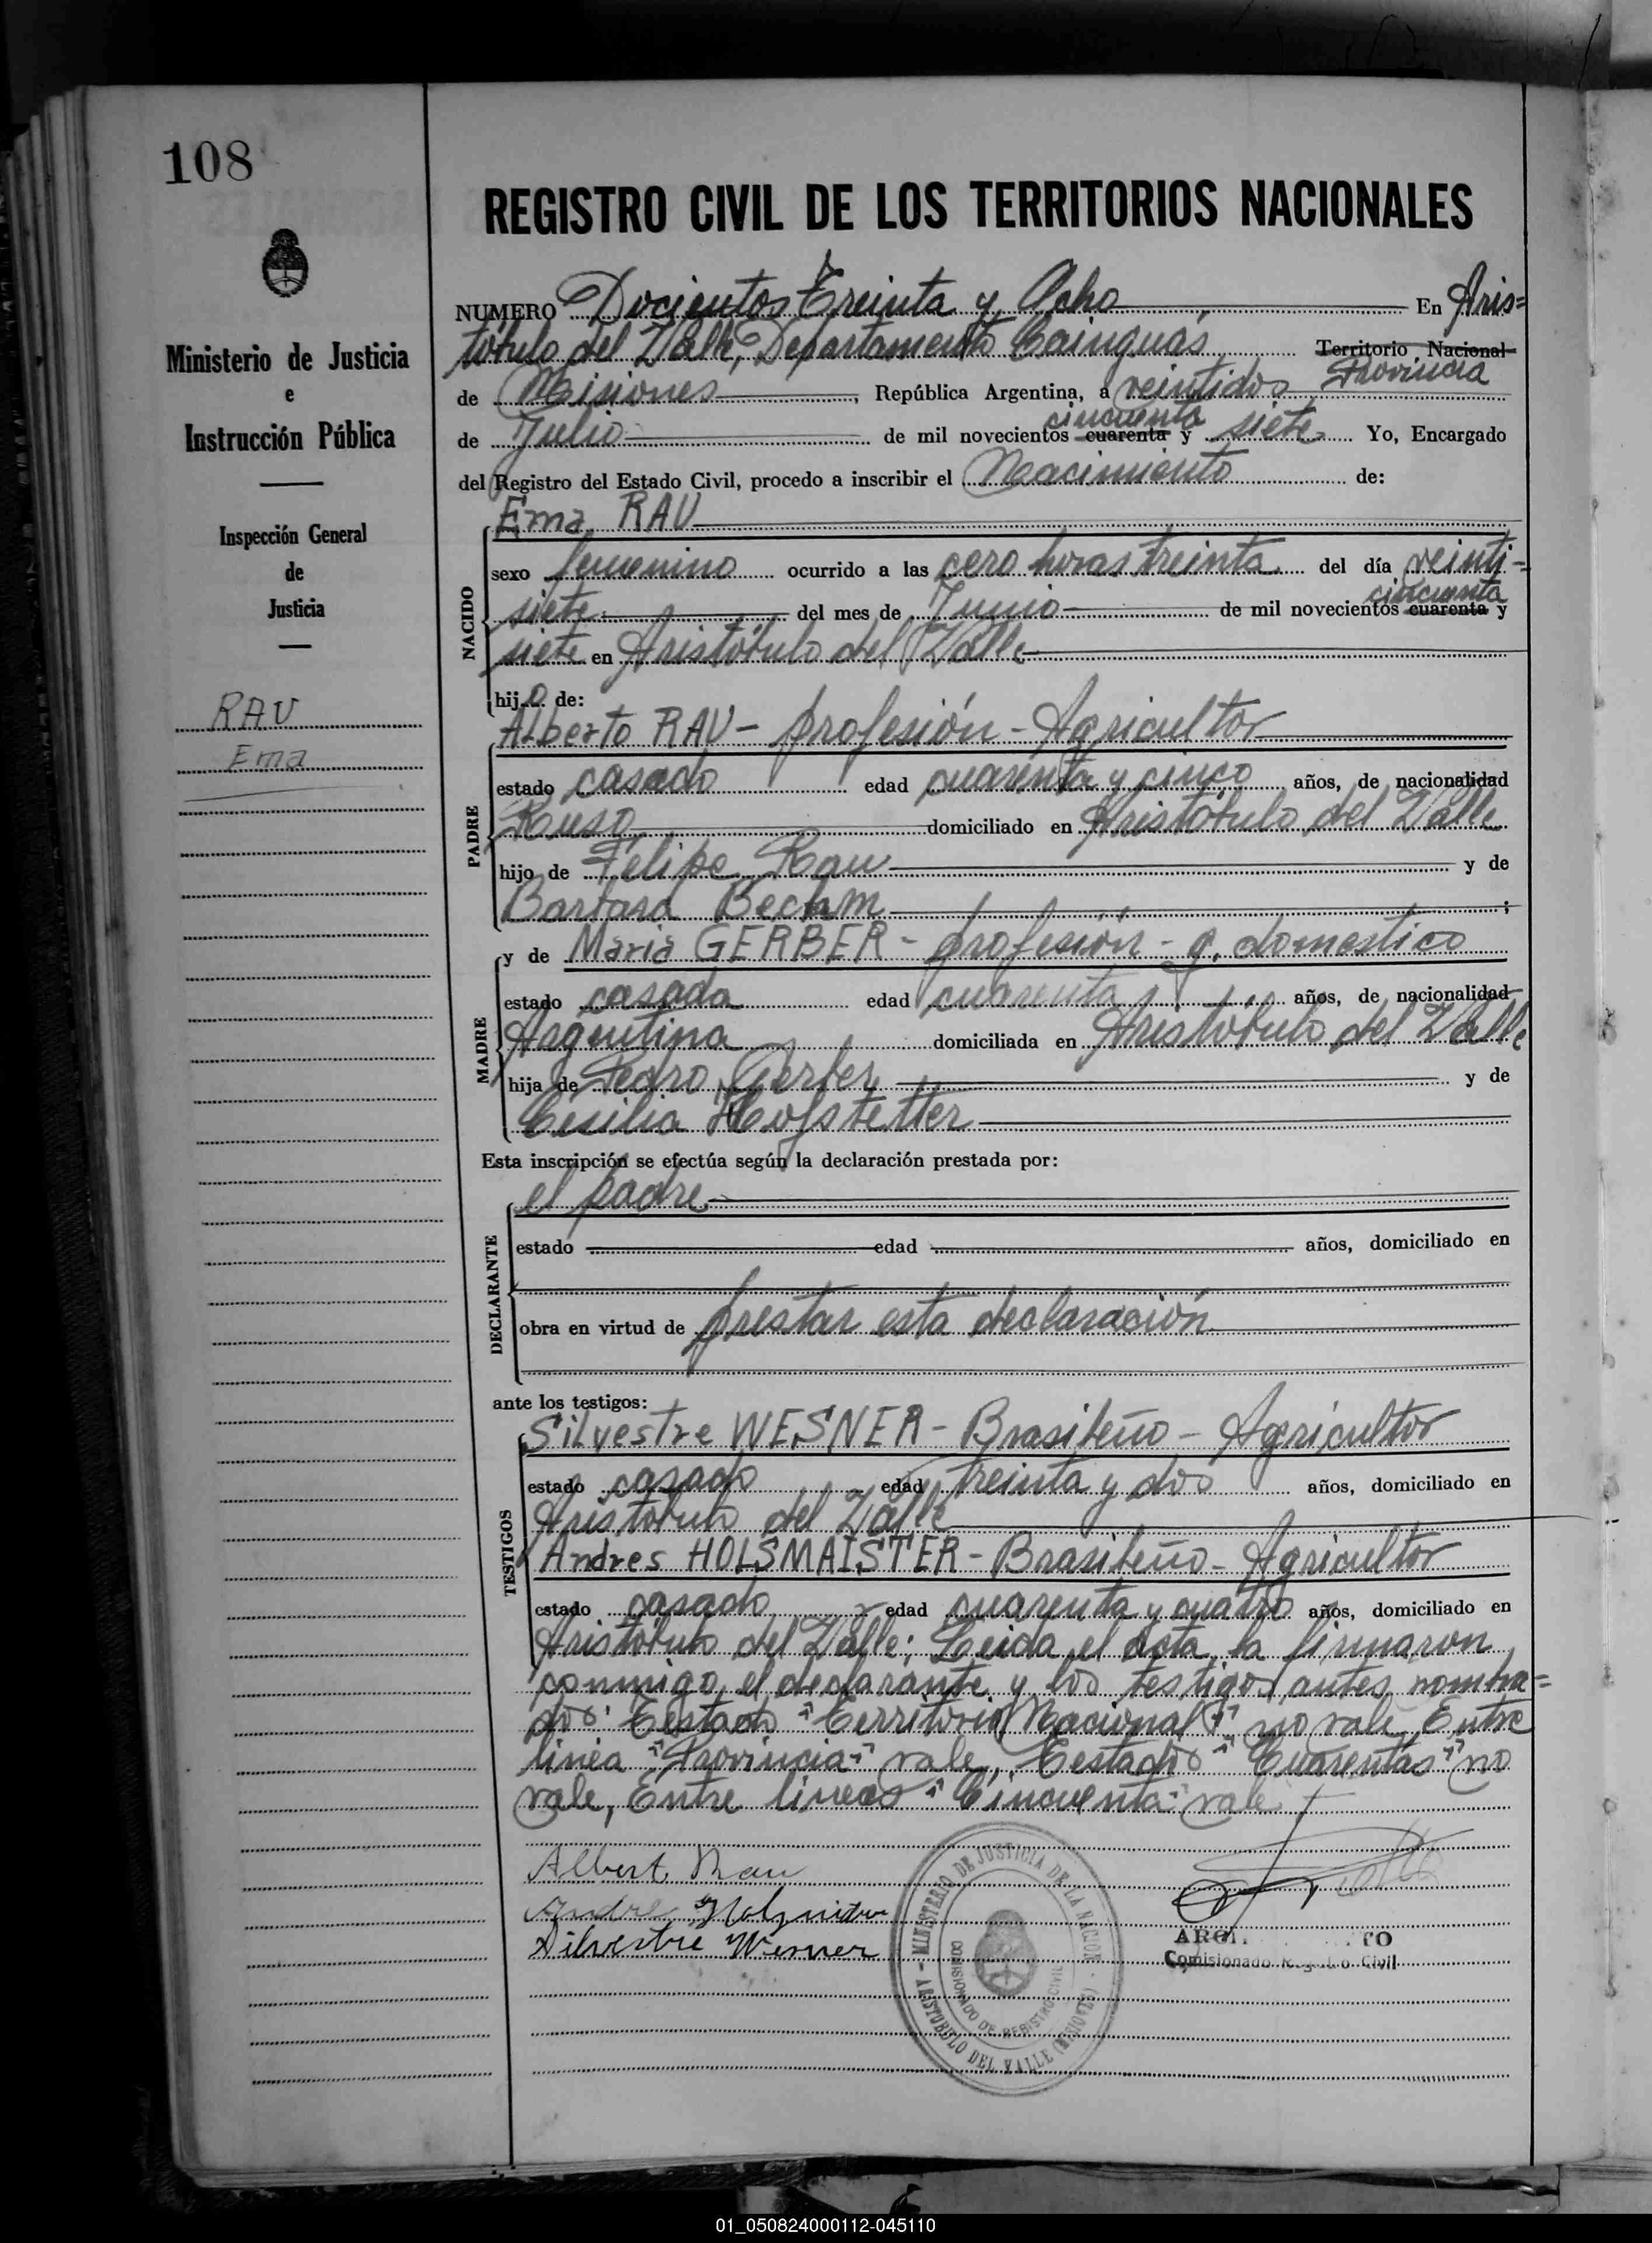 108
REGISTRO CIVIL DE LOS TERRITORIOS NACIONALES
Ministerio de Justicia
e
Instrucción Pública
Inspección General
de
Justicia
RAU
Ema
NUMERO Docientos Treinta y Ocho En Aris=
tóbulo del Valle, Departamento Cainguás, Territorio Nacional
Provincia
de Misiones, República Argentina, a veintidos
cincuenta
de Julio de mil novecientos cuarenta y siete. Yo, Encargado
del Registro del Estado Civil, procedo a inscribir el Nacimiento de:
Ema RAU
NACIDO
sexo femenino ocurrido a las cero horas treinta del día veinti=
cincuenta
siete del mes de Junio de mil novecientos cuarenta y
siete en Aristóbulo del Valle
hija de:
Alberto RAU - profesión - Agricultor
PADRE
estado casado edad cuarenta y cinco años, de nacionalidad
Ruso domiciliado en Aristóbulo del Valle
hijo de Felipe Rau y de
Barbara Bechm;
y de Maria GERBER - profesión - q. domestico
MADRE
estado casada edad cuarenta años, de nacionalidad
Argentina domiciliada en Aristóbulo del Valle
hija de Pedro Gerber y de
Cesilia Hofstetter
Esta inscripción se efectúa según la declaración prestada por:
el padre
DECLARANTE
estado edad años, domiciliado en
obra en virtud de prestar esta declaración
ante los testigos:
Silvestre WESNER - Brasileño - Agricultor
TESTIGOS
estado casado edad treinta y dos años, domiciliado en
Aristóbulo del Valle
Andres HOLSMAISTER - Brasileño - Agricultor
estado casado edad cuarenta y cuatro años, domiciliado en
Aristóbulo del Valle; Leida el Acta, la firmaron
conmigo, el declarante y los testigos antes nombra=
dos: Testado "Territorio Nacional" no vale, Entre
linea "Provincia" vale, Testados "Cuarentas" no
vale, Entre lineas "Cincuenta" vale
Albert Rau
Andre
Silvestre Wesner
MINISTERIO DE JUSTICIA DE LA NACION
COMISIONADO DE REGISTRO CIVIL
ARISTOBULO DEL VALLE (MISIONES)
TO
Comisionado Registro Civil
01_050824000112-045110